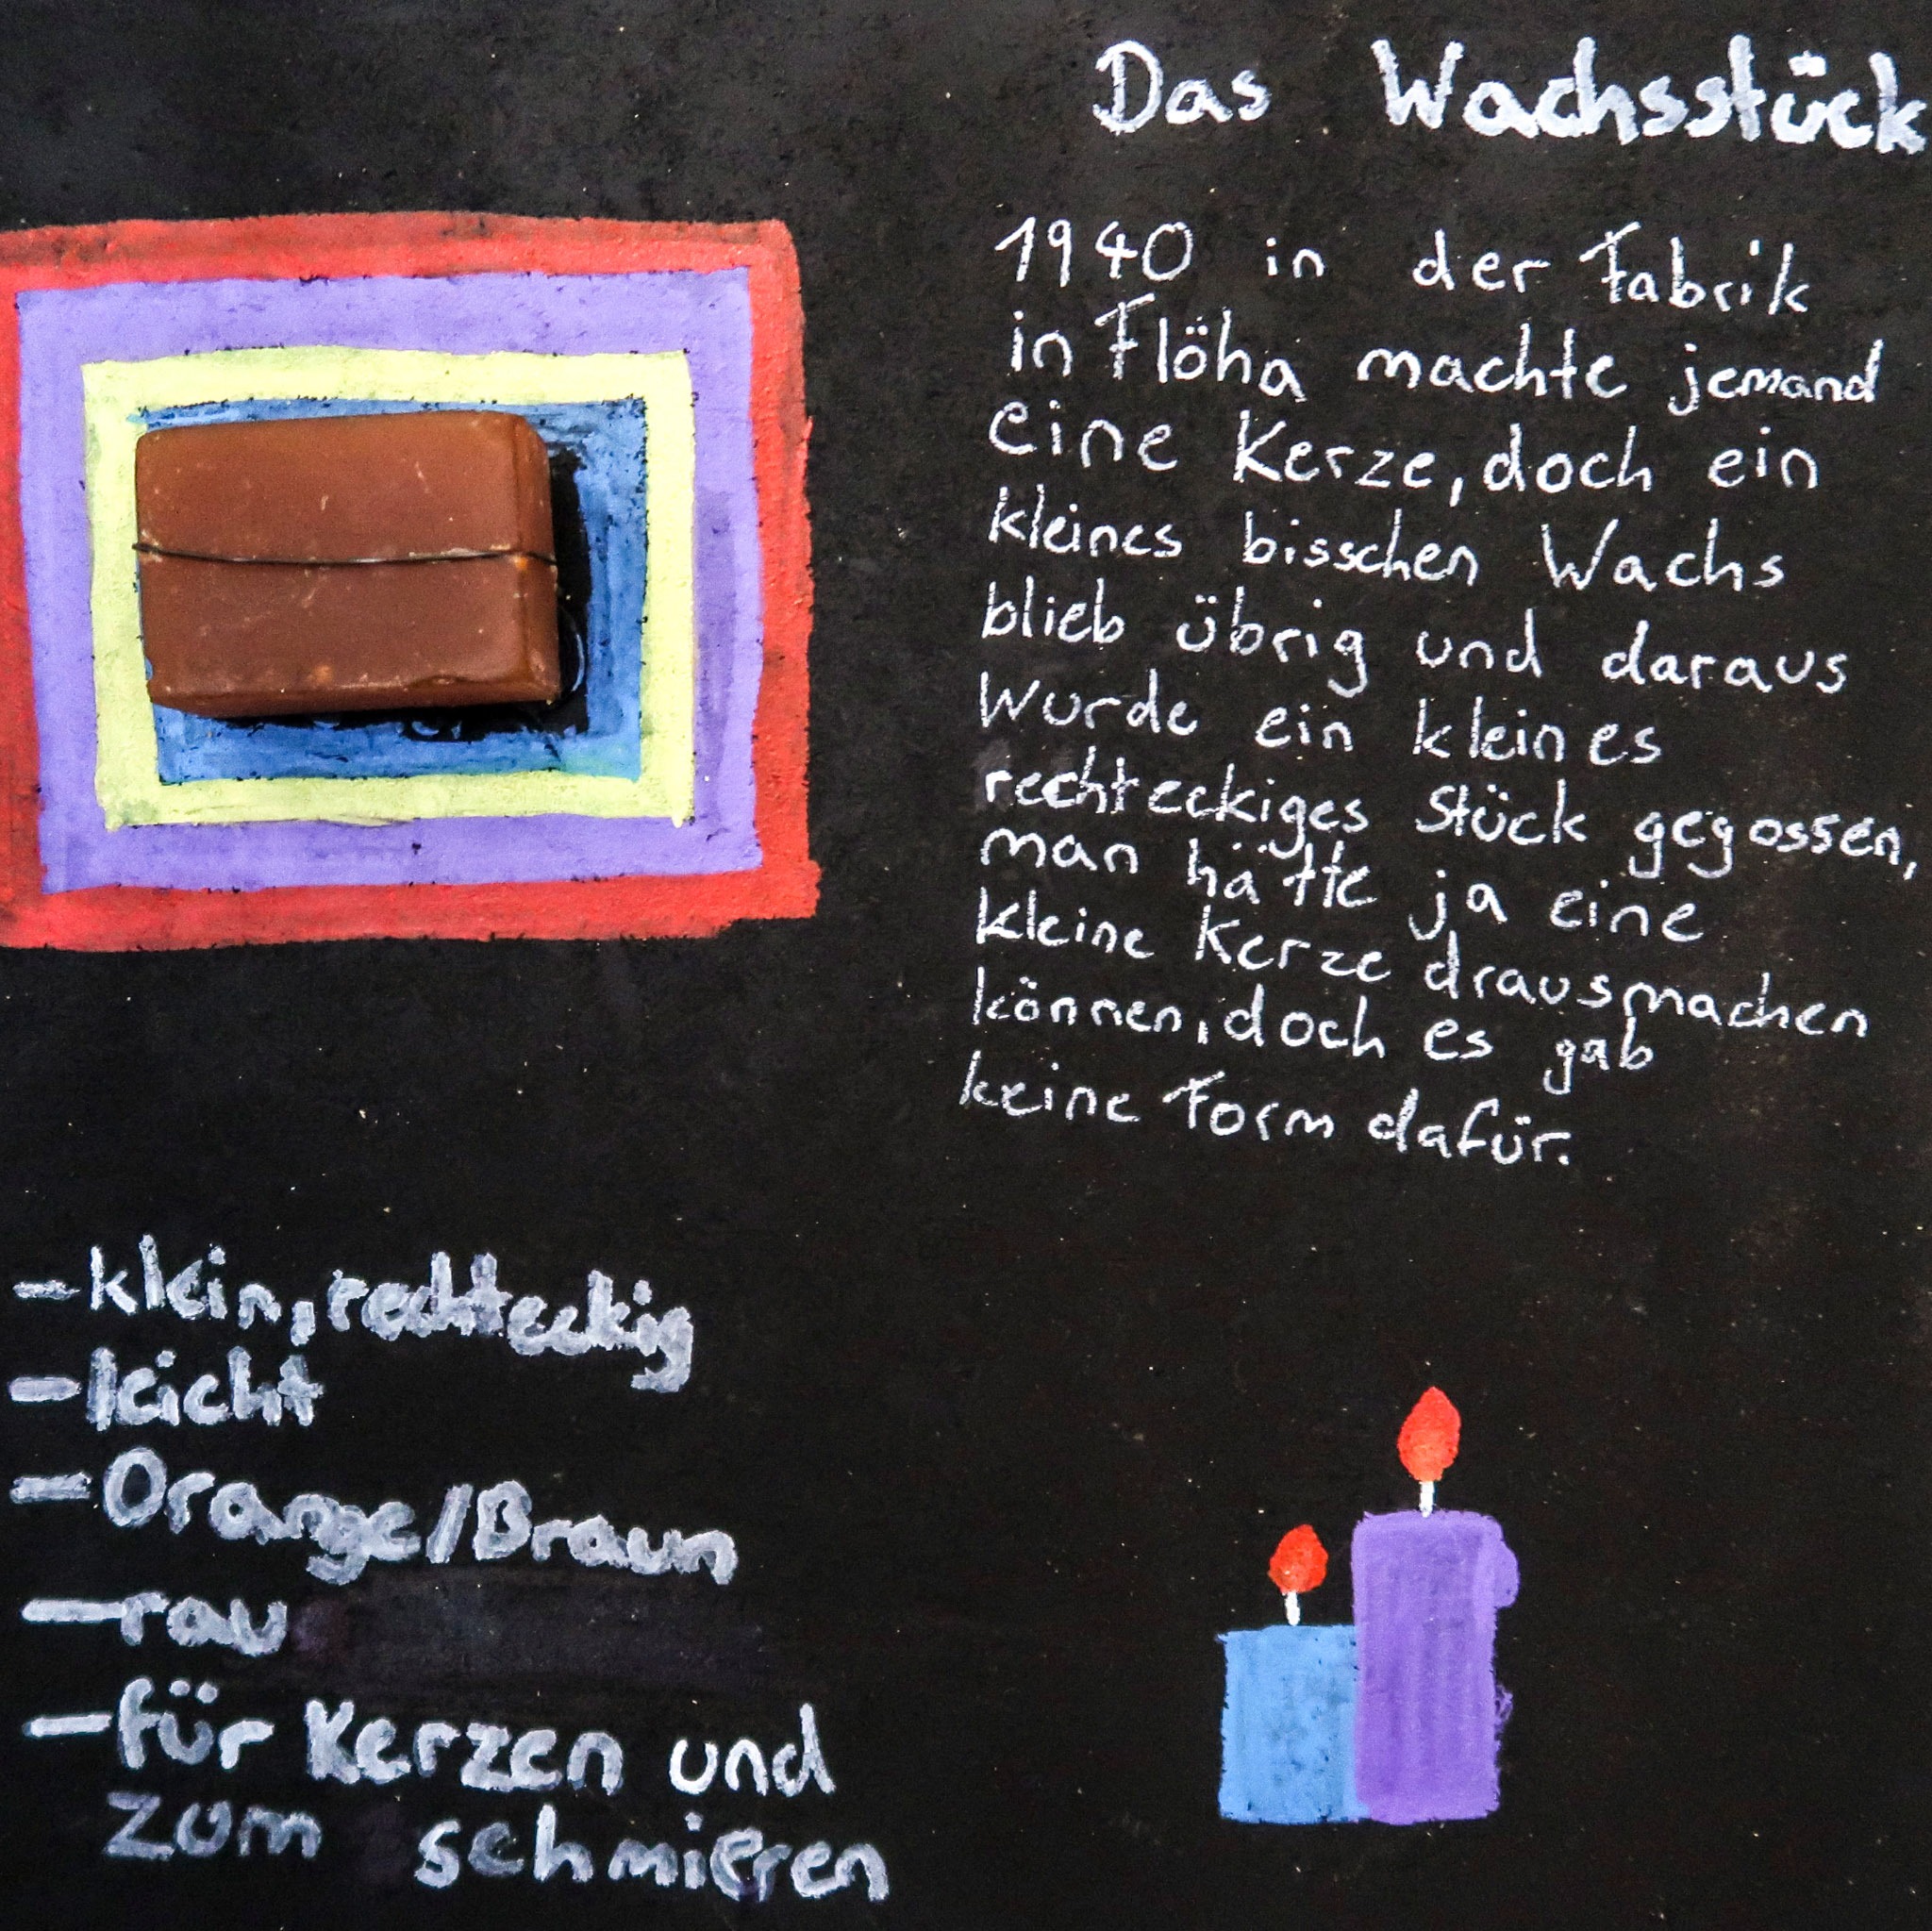 Das Wachsstück
1940 in der Fabrik
in Flöha machte jemand
eine Kerze, doch ein
kleines bisschen Wachs
blieb übrig und daraus
wurde ein kleines
rechteckiges Stück gegossen,
man hätte ja eine
kleine Kerze drausmachen
können, doch es gab
keine Form dafür.
- klein, rechteckig
- leicht
- Orange/Braun
- rau
- für Kerzen und
zum schmieren